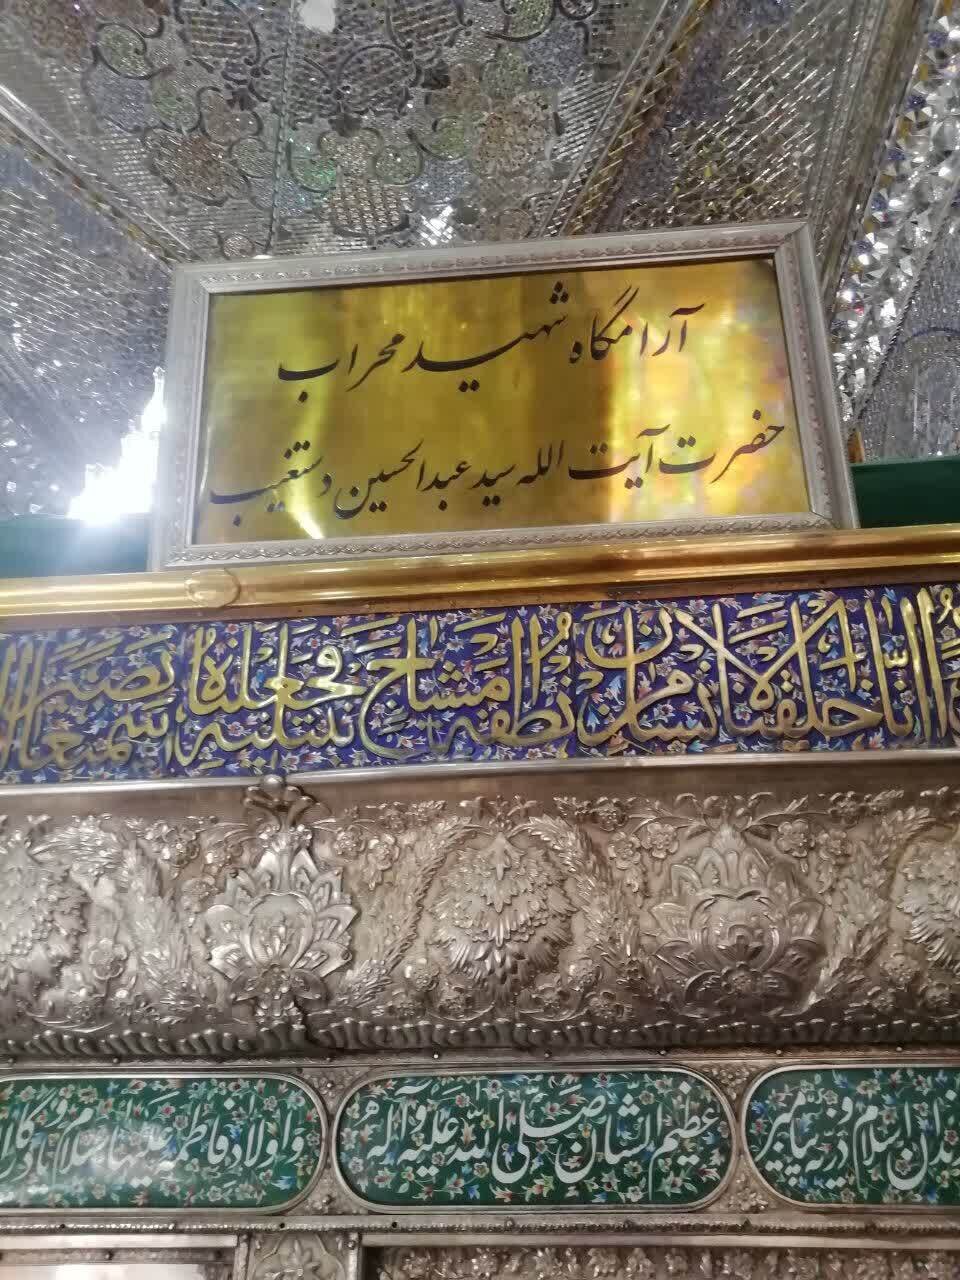 آرامگاه شهید محراب
حضرت آیت الله سید عبدالحسین دستغیب
اِنَّا خَلَقْنَا الْاِنْسَانَ مِنْ نُطْفَةٍ اَمْشَاجٍ نَبْتَلِيهِ فَجَعَلْنَاهُ سَمِيعًا بَصِيرًا
اسلام و ذریه پیامبر
عظیم الشان صلی الله علیه و آله
و اولاد فاطمه علیها سلام